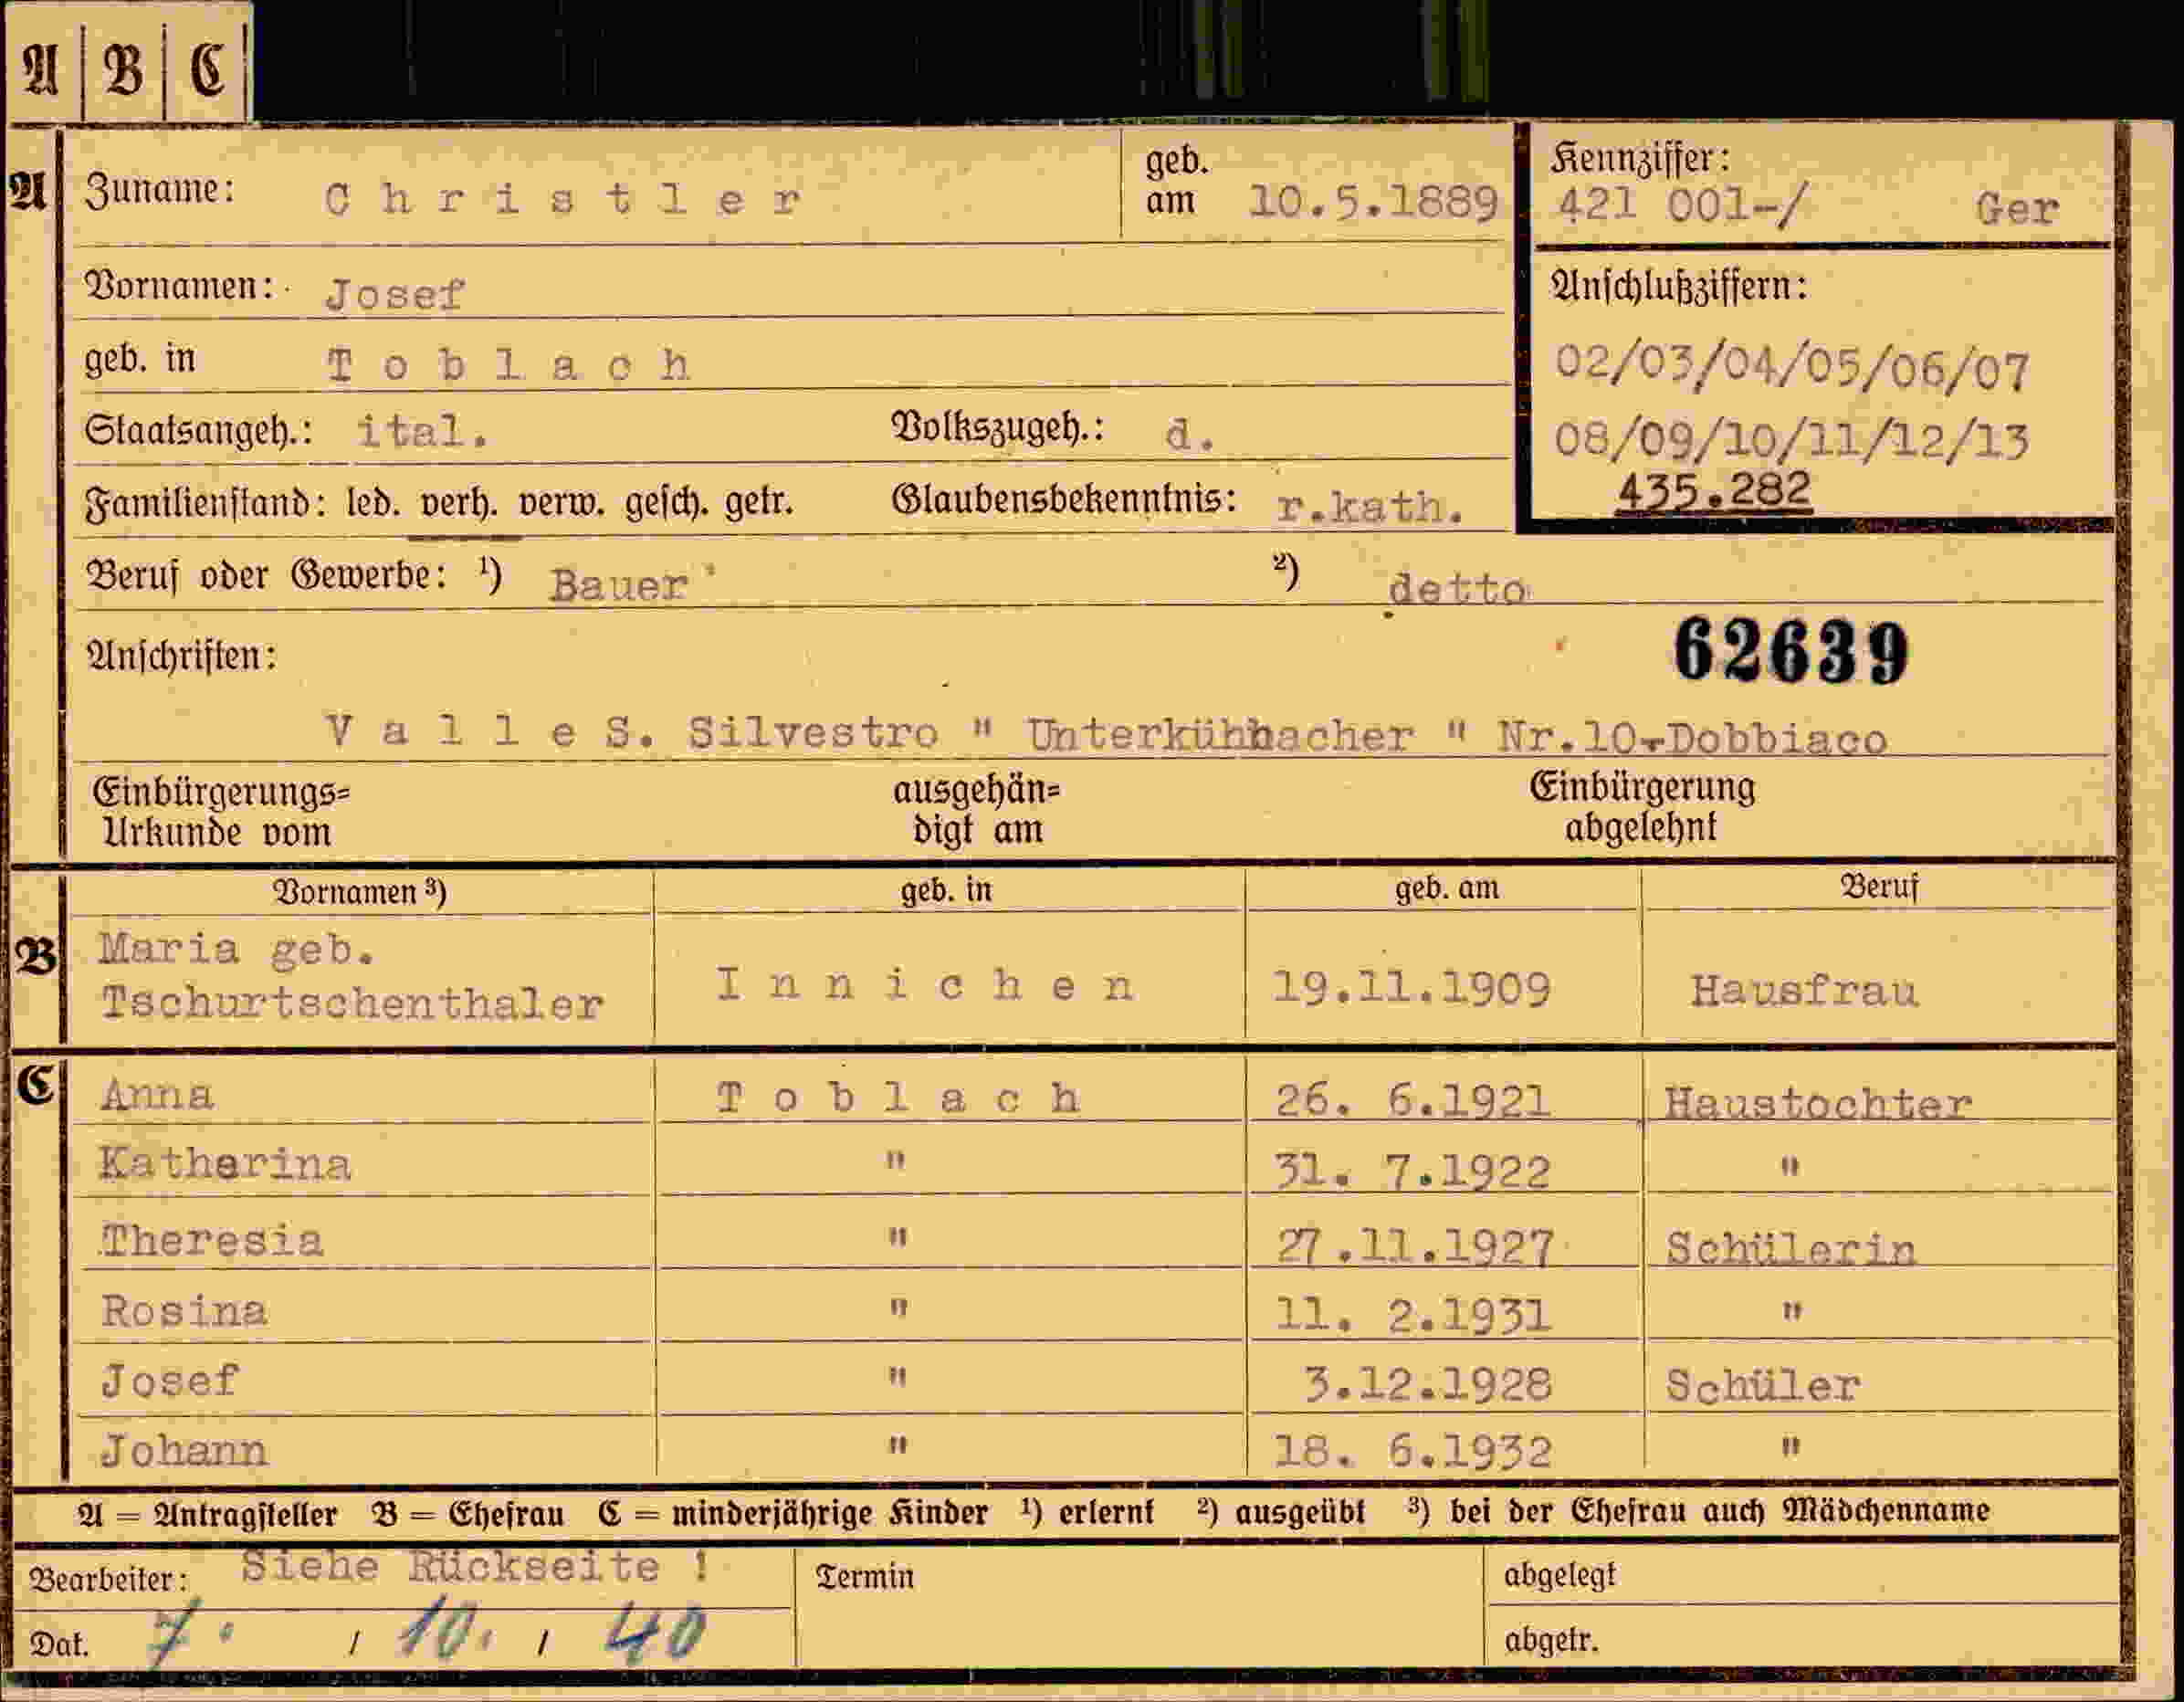 A B C
A Zuname: Christler geb. am 10.5.1889
Kennziffer:
421 001-/ Ger
Vornamen: Josef
Anschlußziffern:
geb. in Toblach
02/03/04/05/06/07
Staatsangeh.: ital. Volkszugeh.: d.
08/09/10/11/12/13
435.282
Familienstand: led. verh. verw. gesch. getr. Glaubensbekenntnis: r.kath.
Beruf oder Gewerbe: ¹) Bauer ²) detto
Anschriften: 62639
Valle S. Silvestro " Unterkühbacher " Nr.10-Dobbiaco
Einbürgerungs= ausgehän= Einbürgerung
Urkunde vom digt am abgelehnt
Vornamen ³) geb. in geb. am Beruf
B Maria geb.
Tschurtschenthaler Innichen 19.11.1909 Hausfrau
C Anna Toblach 26. 6.1921 Haustochter
Katherina " 31. 7.1922 "
Theresia " 27.11.1927 Schülerin
Rosina " 11. 2.1931 "
Josef " 3.12.1928 Schüler
Johann " 18. 6.1932 "
A = Antragsteller B = Ehefrau C = minderjährige Kinder ¹) erlernt ²) ausgeübt ³) bei der Ehefrau auch Mädchenname
Bearbeiter: Siehe Rückseite ! Termin abgelegt
Dat. 7. / 10. / 40 abgetr.